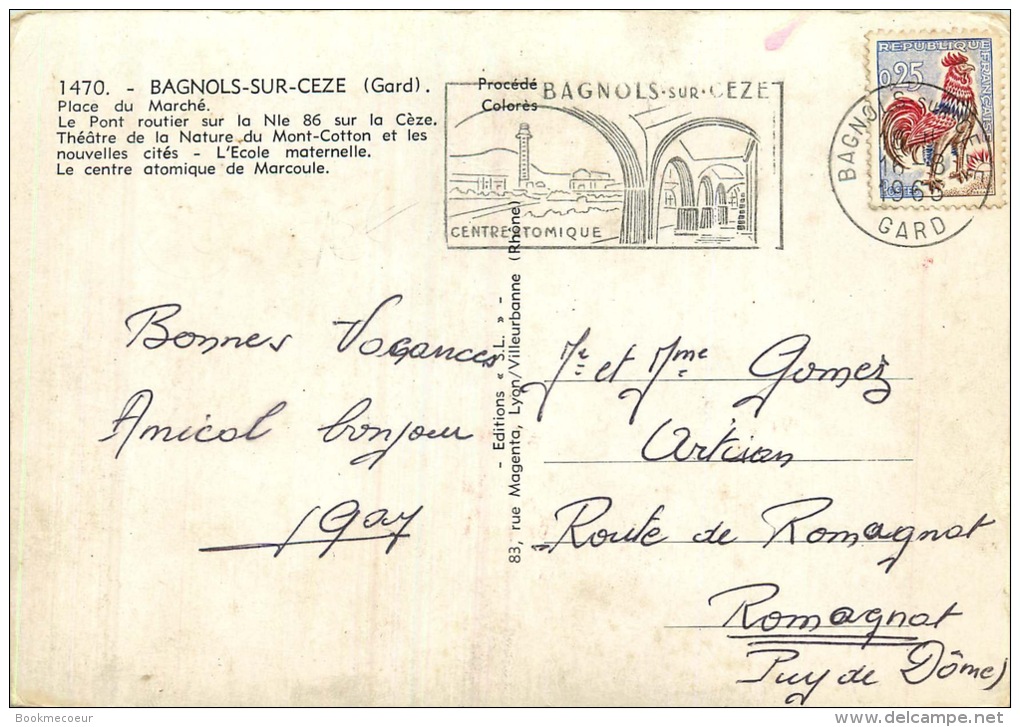 1470. - BAGNOLS-SUR-CEZE (Gard).
Place du Marché.
Le Pont routier sur la Nle 86 sur la Cèze.
Théâtre de la Nature du Mont-Cotton et les
nouvelles cités - L'Ecole maternelle.
Le centre atomique de Marcoule.
Procédé
Colorès
BAGNOLS-SUR-CEZE
CENTRE ATOMIQUE
REPUBLIQUE FRANÇAISE
0,25
POSTES
BAGNOLS SUR CEZE
GARD
- Editions « S.L. » -
83, rue Magenta, Lyon/Villeurbanne (Rhône)
Bonnes Vacances
Amical bonjour
Gay
Mr et Mme Gomez
Artisan
Route de Romagnat
Romagnat
Puy de Dôme
Bookmecoeur
delcampe.net